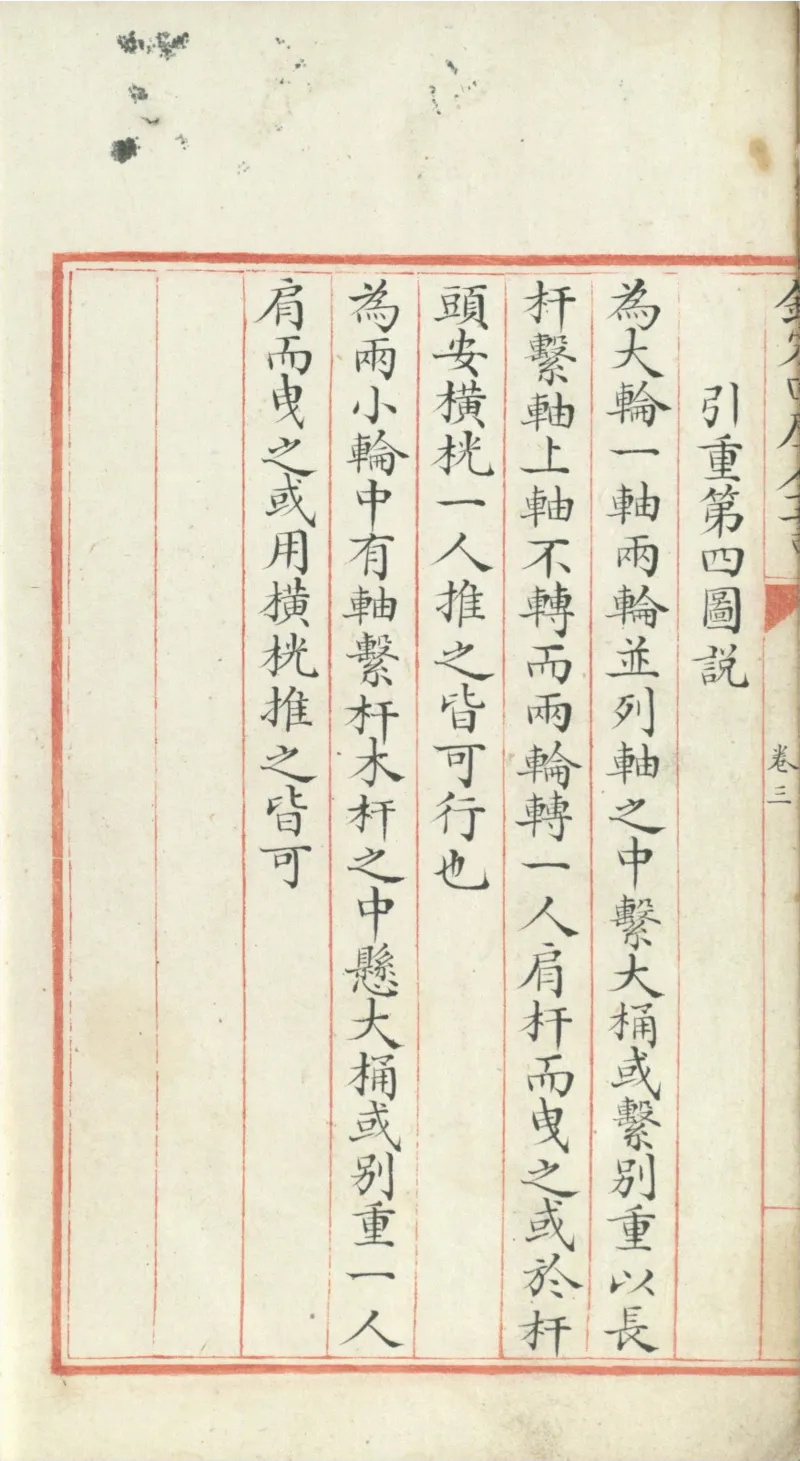 欽定四庫全書
卷三
引重第四圖説
為大輪一軸兩輪並列軸之中繫大桶或繫别重以長
杆繫軸上軸不轉而兩輪轉一人肩杆而曳之或於杆
頭安横桄一人推之皆可行也
為兩小輪中有軸繫杆木杆之中懸大桶或别重一人
肩而曳之或用横桄推之皆可